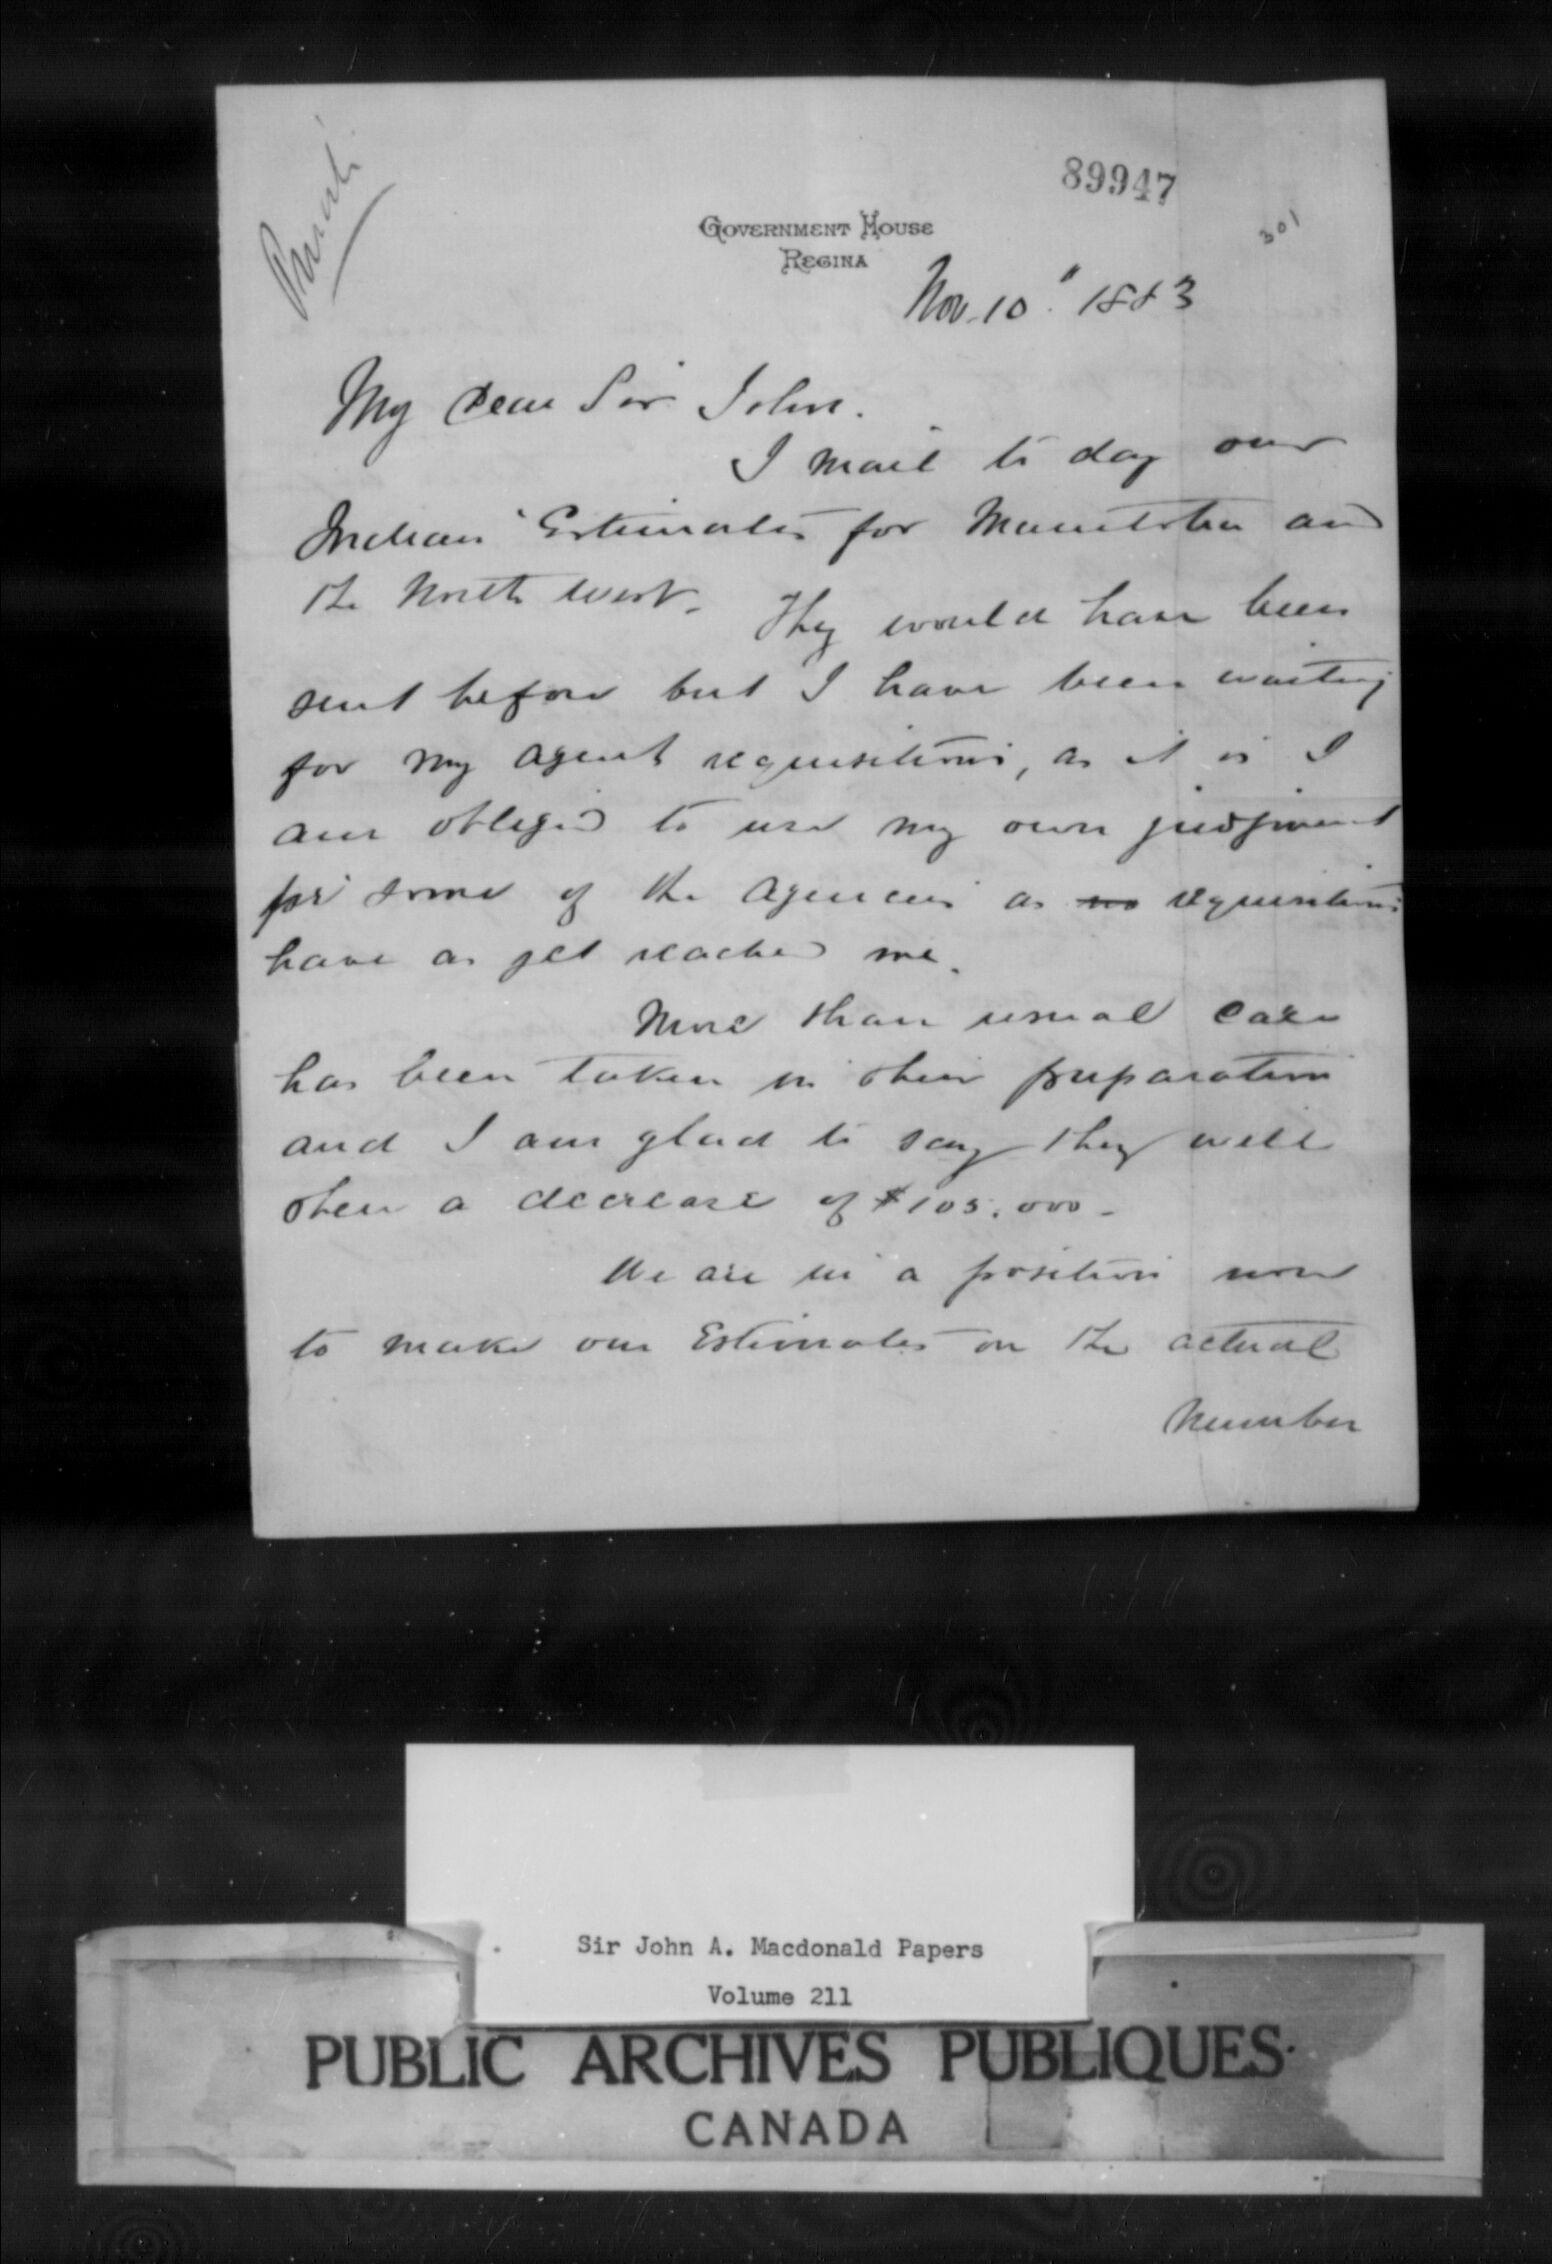 Private
89947
301
Government House
Regina
Nov. 10" 1883
My dear Sir John.
I mail to day our
Indian Estimates for Manitoba and
the North West. They would have been
sent before but I have been waiting
for my agent requisitions, as it is I
am obliged to use my own judgment
for some of the agencies as no requisitions
have as yet reached me.
More than usual care
has been taken in their preparation
and I am glad to say they will
shew a decrease of $105.000-
We are in a position now
to make our Estimates on the actual
number
Sir John A. Macdonald Papers
Volume 211
PUBLIC ARCHIVES PUBLIQUES
CANADA